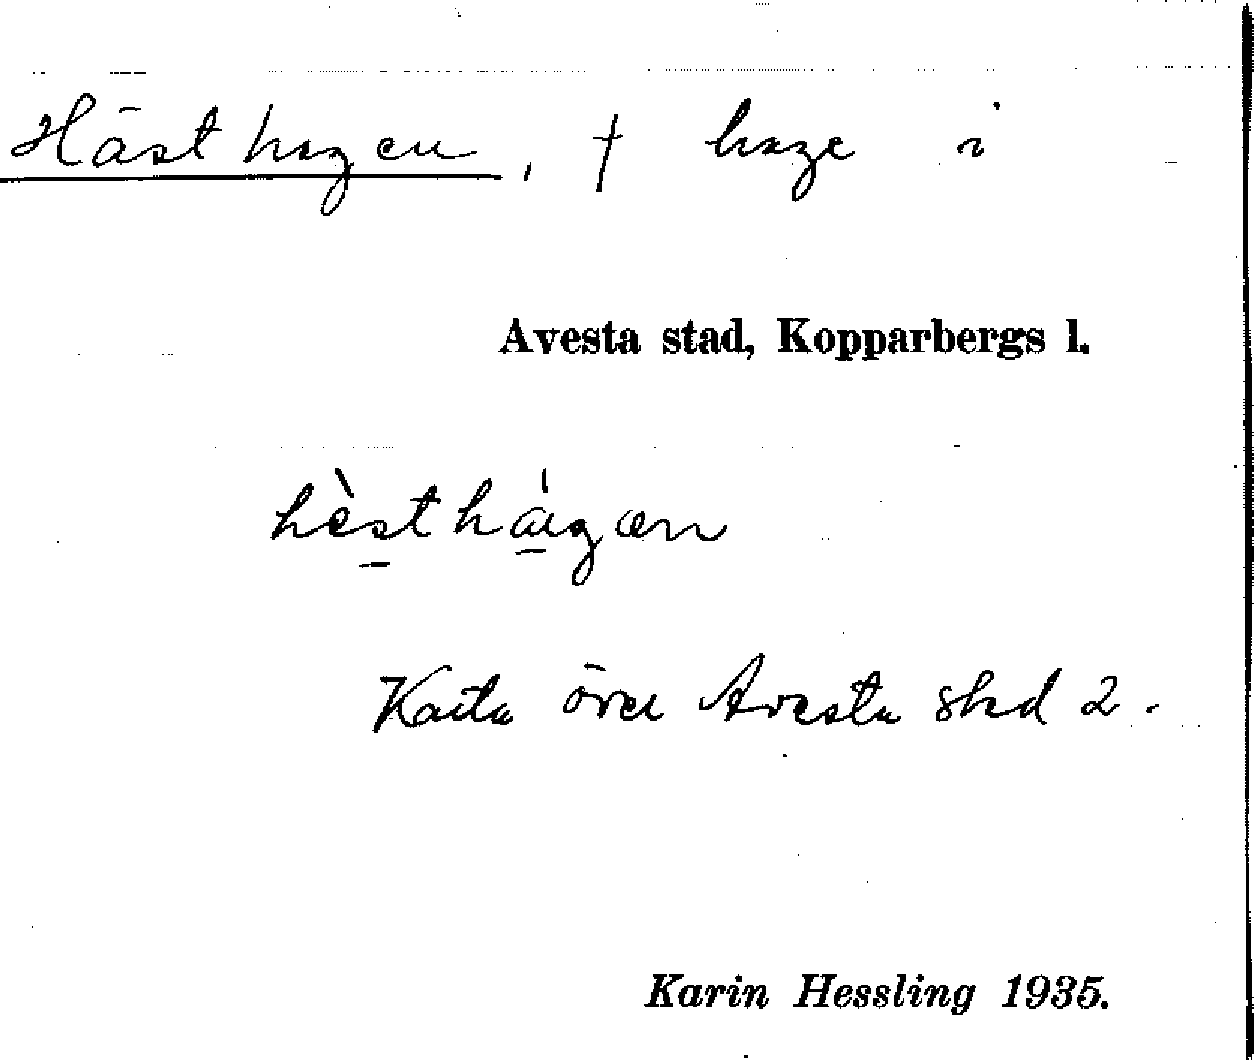 Hästhagen, † hage i
Avesta stad, Kopparbergs l.
hèsthágæn
Karta över Avesta stad 2.
Karin Hessling 1935.